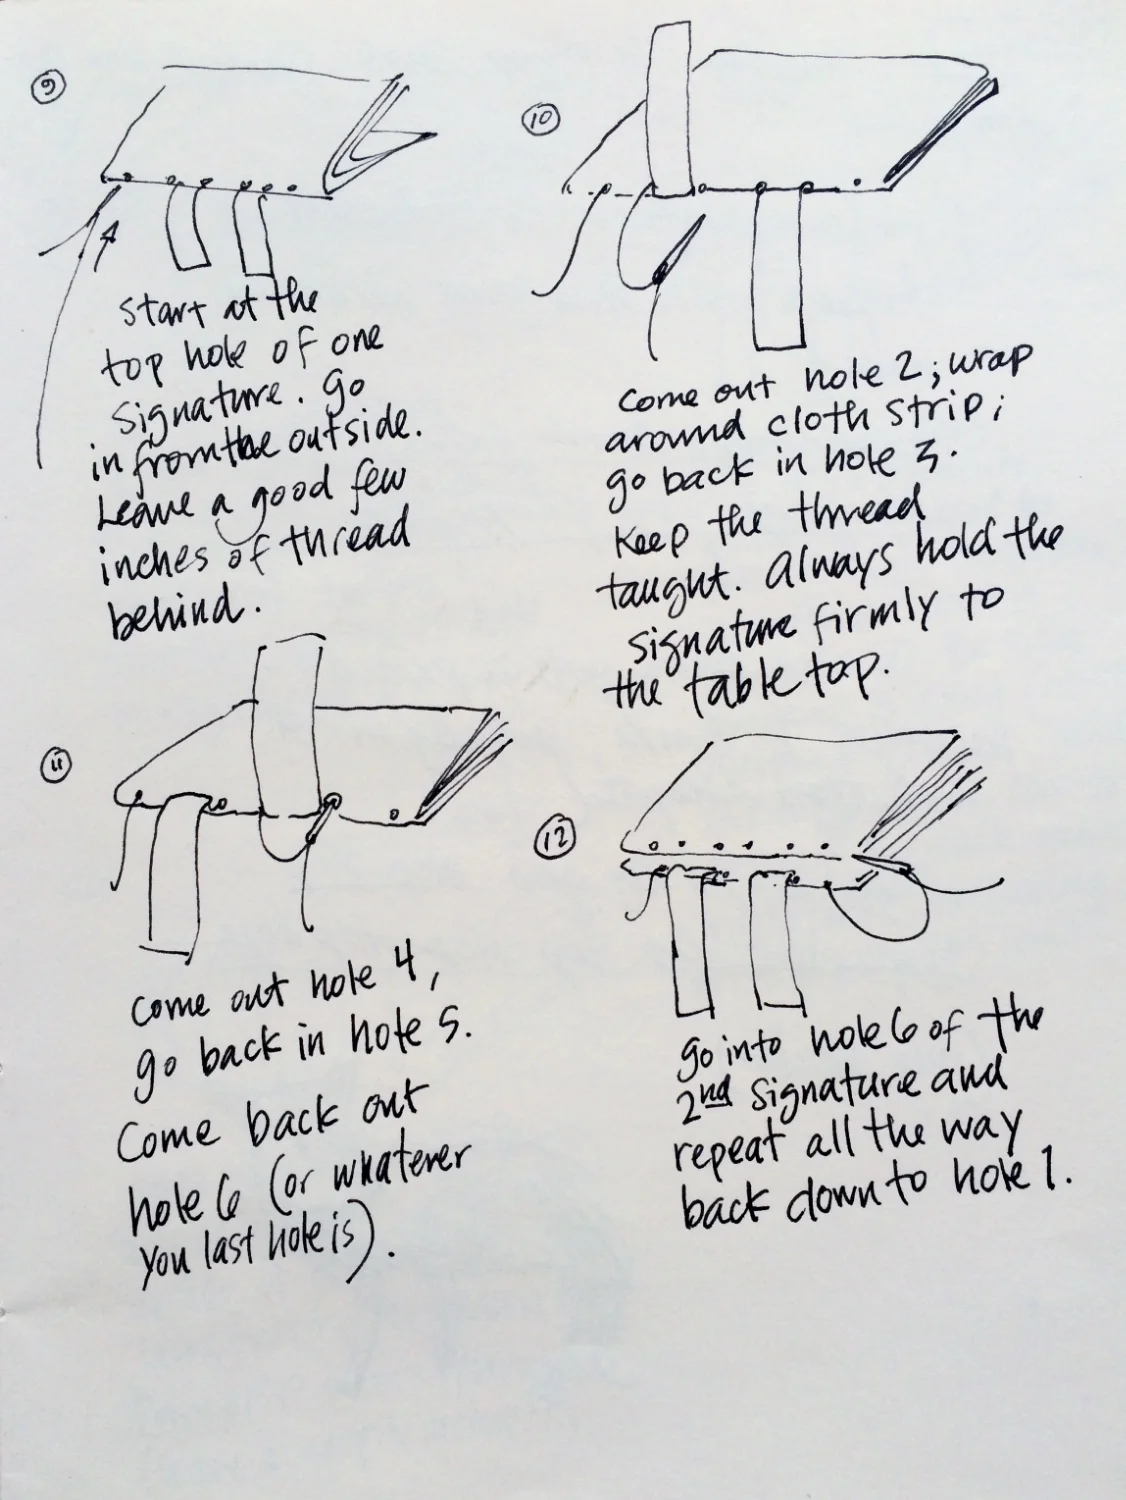 9
Start at the
top hole of one
signature. Go
in from the outside.
Leave a good few
inches of thread
behind.
10
Come out hole 2; wrap
around cloth strip;
go back in hole 3.
Keep the thread
taught. Always hold the
signature firmly to
the table top.
11
Come out hole 4,
go back in hole 5.
Come back out
hole 6 (or whatever
you last hole is).
12
go into hole 6 of the
2nd signature and
repeat all the way
back down to hole 1.